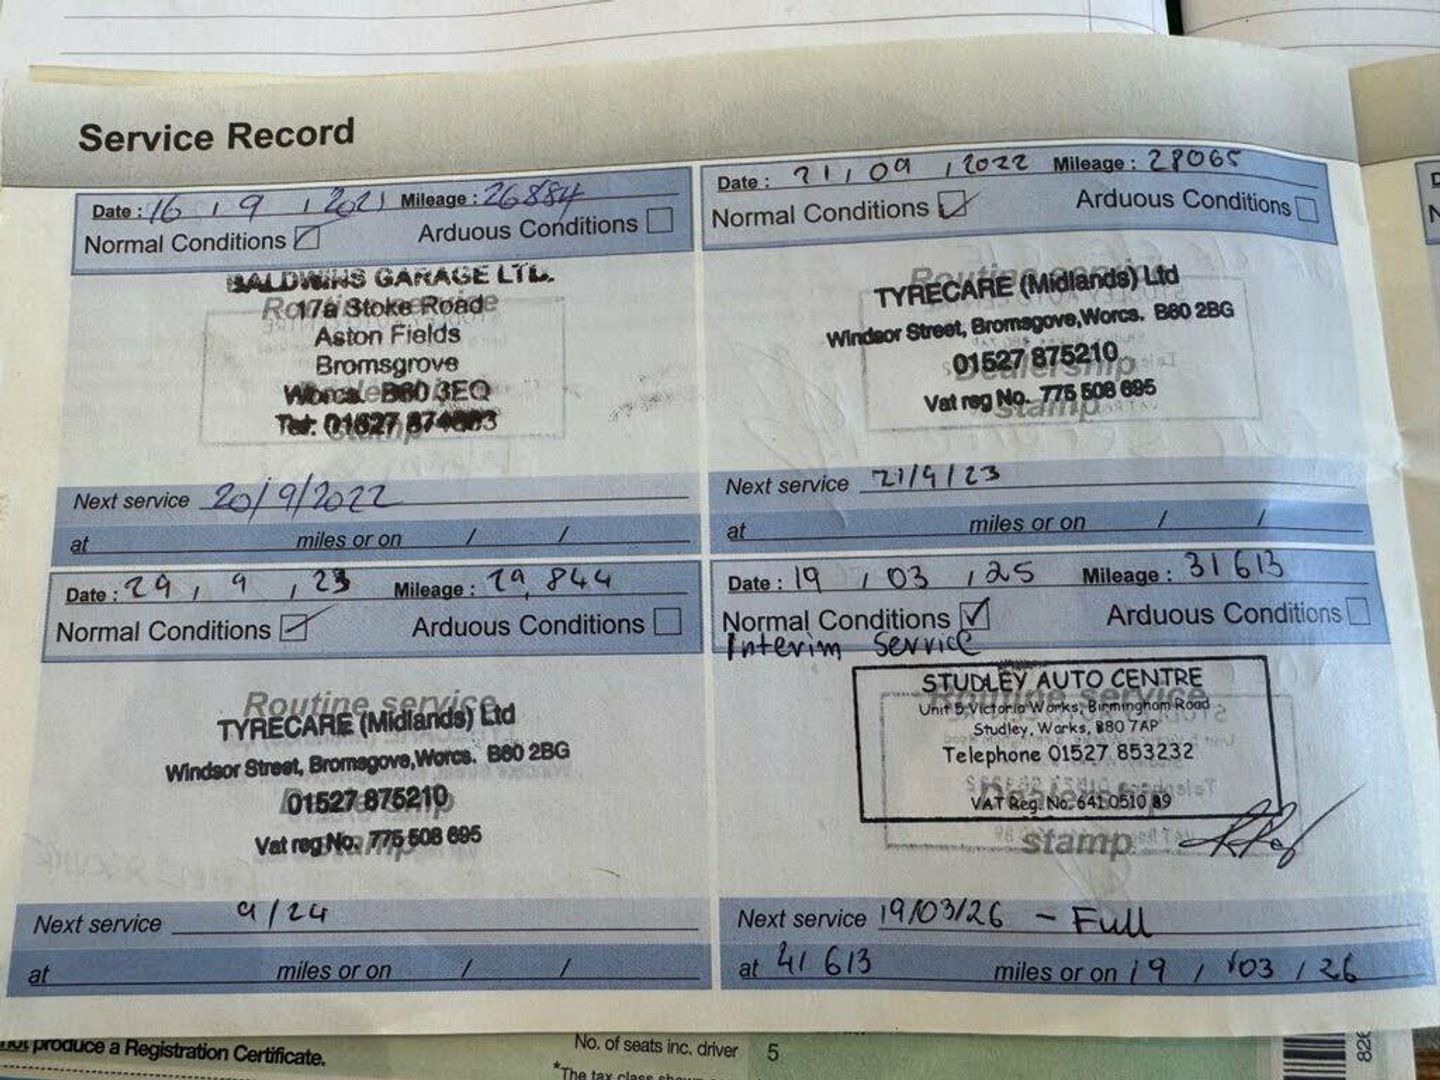 Service Record
Date : 16 / 9 / 2021 Mileage : 26884
Normal Conditions Arduous Conditions
BALDWINS GARAGE LTD.
Routine service
17a Stoke Road
Aston Fields
Bromsgrove
Worcs. B60 3EQ
Tel: 01527
stamp
Next service 20/9/2022
at miles or on / /
Date : 21 / 09 / 2022 Mileage : 28065
Normal Conditions Arduous Conditions
Routine service
TYRECARE (Midlands) Ltd
Windsor Street, Bromsgove,Worcs. B60 2BG
01527 875210
Dealership
Vat reg No. 775 508 695
stamp
Next service 21/9/23
at miles or on / /
Date : 29 / 9 / 23 Mileage : 29,844
Normal Conditions Arduous Conditions
Routine service
TYRECARE (Midlands) Ltd
Windsor Street, Bromsgove,Worcs. B60 2BG
01527 875210
Dealership
Vat reg No. 775 508 695
stamp
Next service 9/24
at miles or on / /
Date : 19 / 03 / 25 Mileage : 31613
Normal Conditions Arduous Conditions
Interim Service
STUDLEY AUTO CENTRE
Routine service
Unit 5 Victoria Works, Birmingham Road
Studley, Warks, B80 7AP
Telephone 01527 853232
Dealership
VAT Reg. No. 641 0510 89
stamp
Next service 19/03/26 - Full
at 41613 miles or on 19 / 03 / 26
not produce a Registration Certificate.
No. of seats inc. driver 5
*The tax class
826